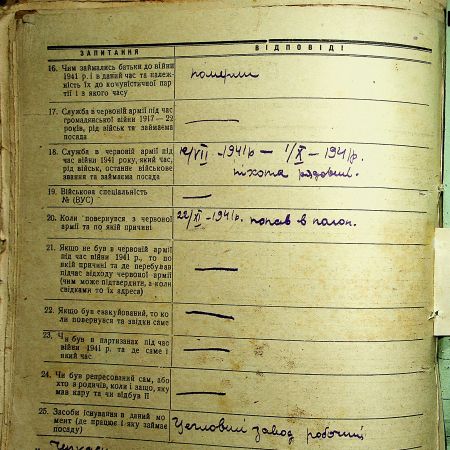 ЗАПИТАННЯ ВІДПОВІДІ
16. Чим займались батьки до війни
1941 р. і в даний час та належ-
ність їх до комуністичної пар-
тії і в якого часу
померли
17. Служба в червоній армії під час
громадянської війни 1917—22
років, рід військ та займаема
посада
—
18. Служба в червоній армії під
час війни 1941 року, який час,
рід військ, останнє військове
звання та займаема посада
/VII -1941р — 1/X - 1941р.
піхота рядовий.
19. Військова спеціальність
№ (ВУС)
—
20. Коли повернувся з червоної
армії та по якій причині
22/XI -1941р. попав в полон.
21. Якщо не був в червоній армії
під час війни 1941 р., то по
якій причині та де перебував
підчас відходу червоної армії
(чим може підтвердити, а коли
свідками то їх адреса)
—
22. Якщо був евакуйований, то ко
ли повернувся та звідки саме
—
23. Чи був в партизанах під час
війни 1941 р. та де саме і
який час
—
24. Чи був репресований сам, або
хто з родичів, коли і защо, яку
мав кару та чи відбув її
—
25. Засоби існування в даний мо
мент (де працює і яку займає
посаду)
Цегловий завод робочий